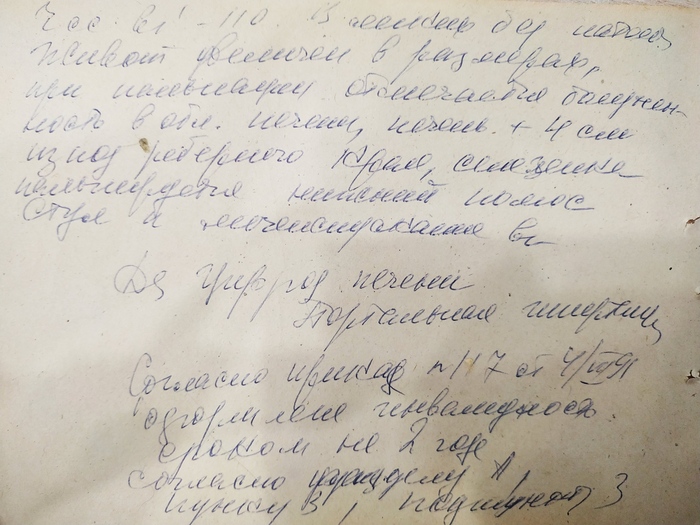 Ч.с.с. в 1' - 110. В легких без патол.
Живот увеличен в размерах,
при пальпации отмечается болезнен-
ность в обл. печени, печень + 4 см
из под реберного края, селезенка
пальпируется нижний полюс
Стул и мочеиспускание в/н
Дs Цирроз печени
Портальная гипертенз
Согласно приказ №117 от 4/VII 91
оформлена инвалидность
сроком на 2 года
согласно разделу
пункту 3, подпункт 3